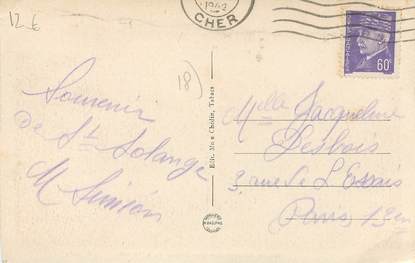 12 €
1942
CHER
60c
18)
Souvenir
De Ste Solange
M Simion
Edit. Mme Chédin, Tabacs
Melle Jacqueline
Desbois
3 rue de l'Essais
Paris, 13e